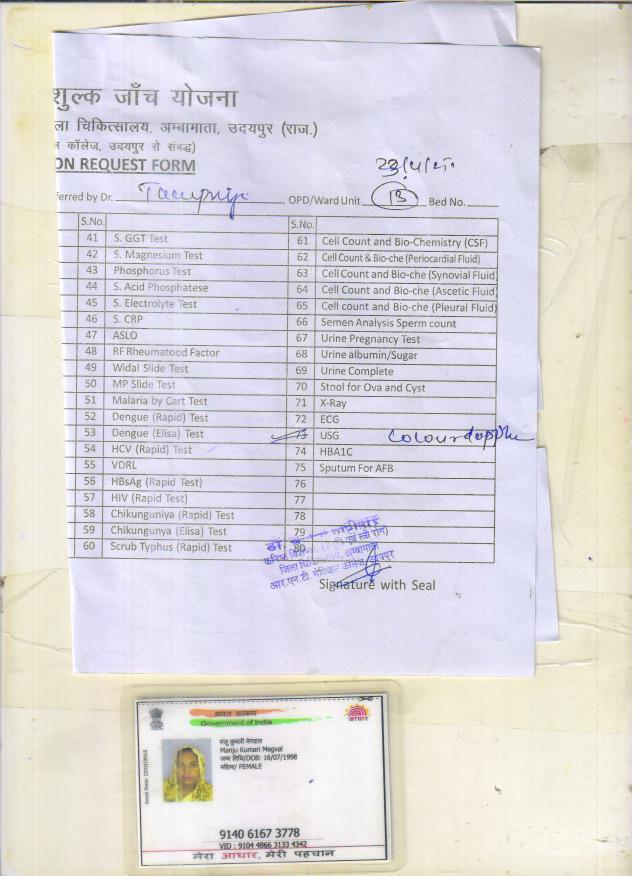 शुल्क जाँच योजना
ला चिकित्सालय, अम्बामाता, उदयपुर (राज.)
कॉलेज, उदयपुर से संबद्ध)
ON REQUEST FORM
ferred by Dr. OPD/Ward Unit 13 Bed No.
S.No. S.No.
41 S. GGT Test 61 Cell Count and Bio-Chemistry (CSF)
42 S. Magnesium Test 62 Cell Count & Bio-che (Periocardial Fluid)
43 Phosphorus Test 63 Cell Count and Bio-che (Synovial Fluid)
44 S. Acid Phosphatese 64 Cell Count and Bio-che (Ascetic Fluid)
45 S. Electrolyte Test 65 Cell count and Bio-che (Pleural Fluid)
46 S. CRP 66 Semen Analysis Sperm count
47 ASLO 67 Urine Pregnancy Test
48 RF Rheumatood Factor 68 Urine albumin/Sugar
49 Widal Slide Test 69 Urine Complete
50 MP Slide Test 70 Stool for Ova and Cyst
51 Malaria by Cart Test 71 X-Ray
52 Dengue (Rapid) Test 72 ECG
53 Dengue (Elisa) Test 73 USG
54 HCV (Rapid) Test 74 HBA1C
55 VDRL 75 Sputum For AFB
56 HBsAg (Rapid Test) 76
57 HIV (Rapid Test) 77
58 Chikunguniya (Rapid) Test 78
59 Chikungunya (Elisa) Test 79
60 Scrub Typhus (Rapid) Test 80
डॉ.
जिला अम्बामाता
आर.एन.टी. मेडिकल कॉलेज, उदयपुर
Signature with Seal
भारत सरकार
Government of India
आधार
मंजु कुमारी मेगवाल
Manju Kumari Megval
जन्म तिथि/DOB: 16/07/1998
महिला/ FEMALE
9140 6167 3778
VID : 9104 4866 3133 4342
मेरा आधार, मेरी पहचान